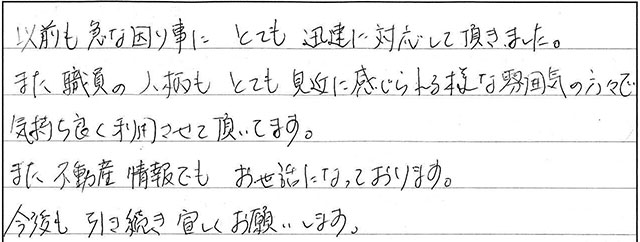 以前も急な困り事に とても 迅速に対応して頂きました。
また 職員の人柄も とても 見近に感じられる様な雰囲気の方々で
気持ち良く利用させて頂いてます。
また 不動産情報でも お世話になっております。
今後も 引き続き 宜しくお願いします。